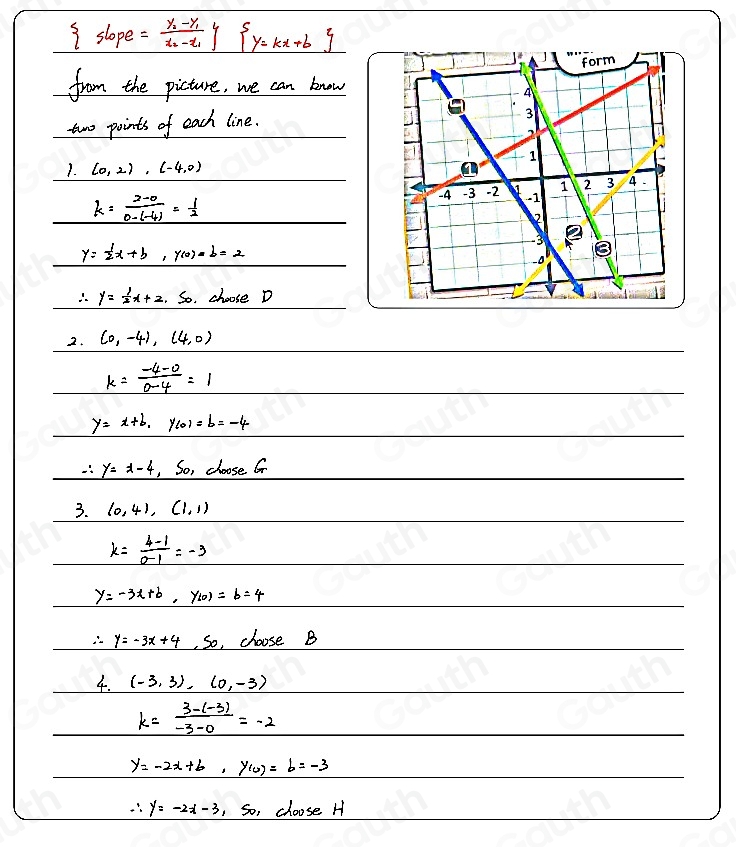 { slope = \frac{y₂-y₁}{x₂-x₁} } { y=kx+b }
from the picture, we can know
two points of each line.
1. (0,2), (-4,0)
k = \frac{2-0}{0-(-4)} = \frac{1}{2}
y = \frac{1}{2}x+b, y(0)=b=2
∴ y=\frac{1}{2}x+2. So, choose D
form
4
3
1
1
-4 -3 -2 1 1 2 3 4
-1
-2
-3
2
3
2. (0,-4), (4,0)
k = \frac{-4-0}{0-4} = 1
y= x+b. y(0)=b=-4
∴ y= x-4, So, choose G
3. (0,4), (1,1)
k= \frac{4-1}{0-1} = -3
y=-3x+b, y(0)= b=4
∴ y=-3x+4, So, choose B
4. (-3,3), (0,-3)
k= \frac{3-(-3)}{-3-0} = -2
y= -2x+b, y(0)= b=-3
∴ y= -2x-3, So, choose H
Gauth